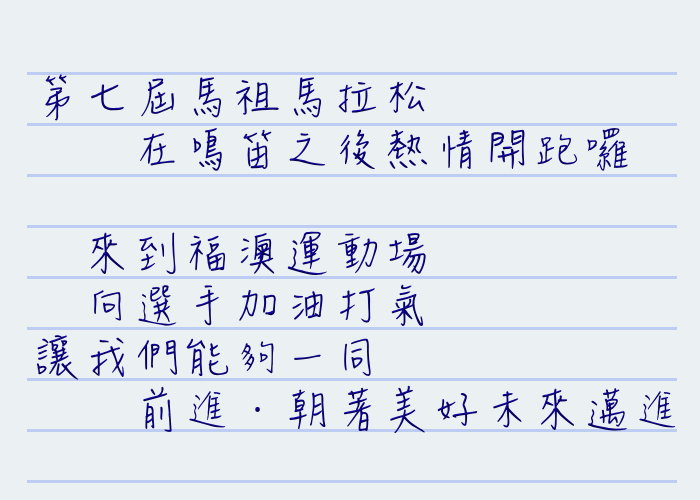 第七屆馬祖馬拉松
在鳴笛之後熱情開跑囉
來到福澳運動場
向選手加油打氣
讓我們能夠一同
前進．朝著美好未來邁進